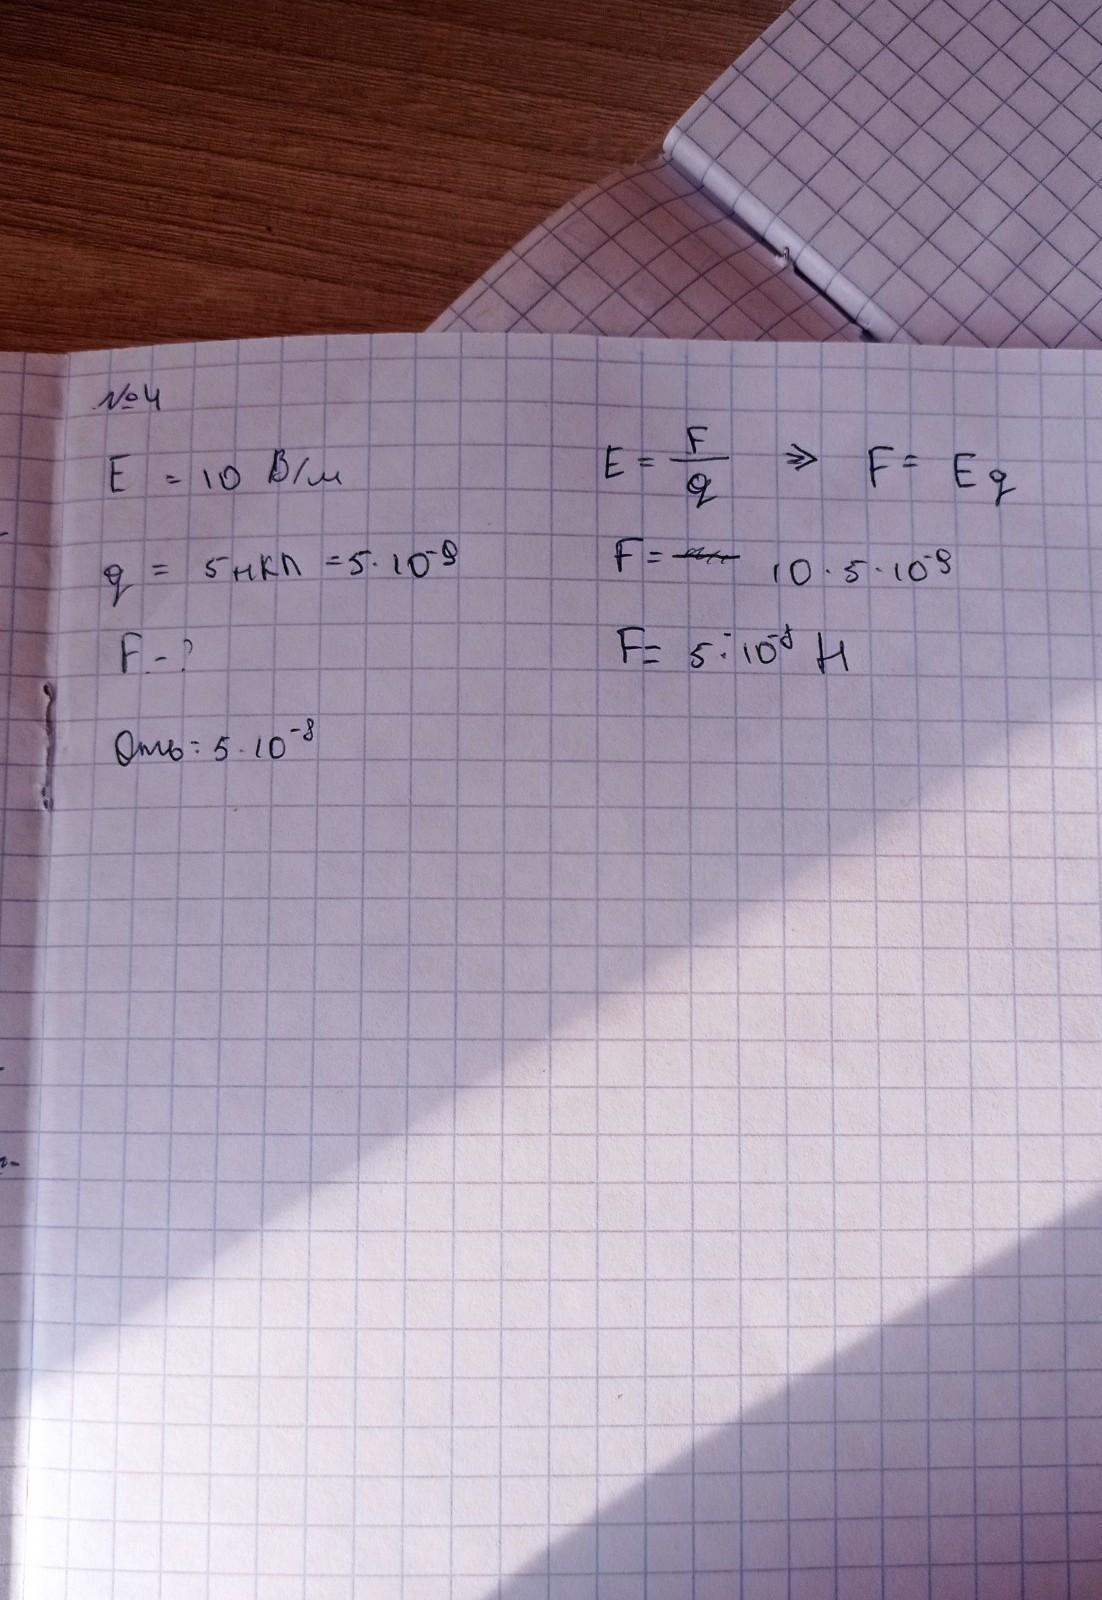 №4
E = 10 В/м
q = 5нкл = 5·10⁻⁹
F - ?
Отв: 5·10⁻⁸
E = F/q ⇒ F = Eq
F = 10·5·10⁻⁹
F = 5·10⁻⁸ Н